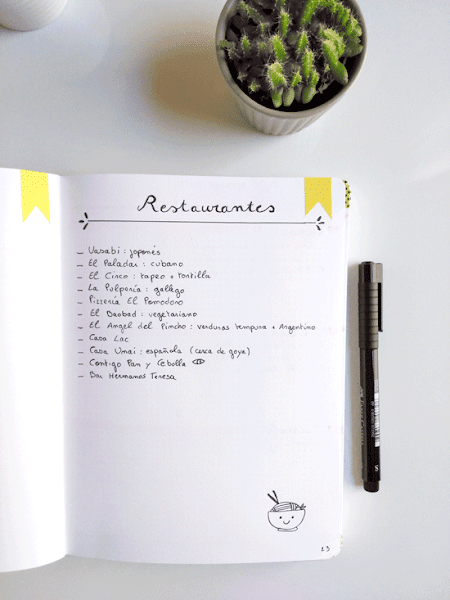 Restaurantes
– Uasabi : japonés
– El Paladar : cubano
– El Circo : tapeo + tortilla
– La Pulpería : gallego
– Pizzería El Pomodoro
– El Baobad : vegetariano
– El Angel del Pincho : verduras tempura + Argentino
– Casa Lac
– Casa Unai : española (cerca de goya)
– Contigo Pan y Cebolla
– Bar Hermanos Teresa
23
S